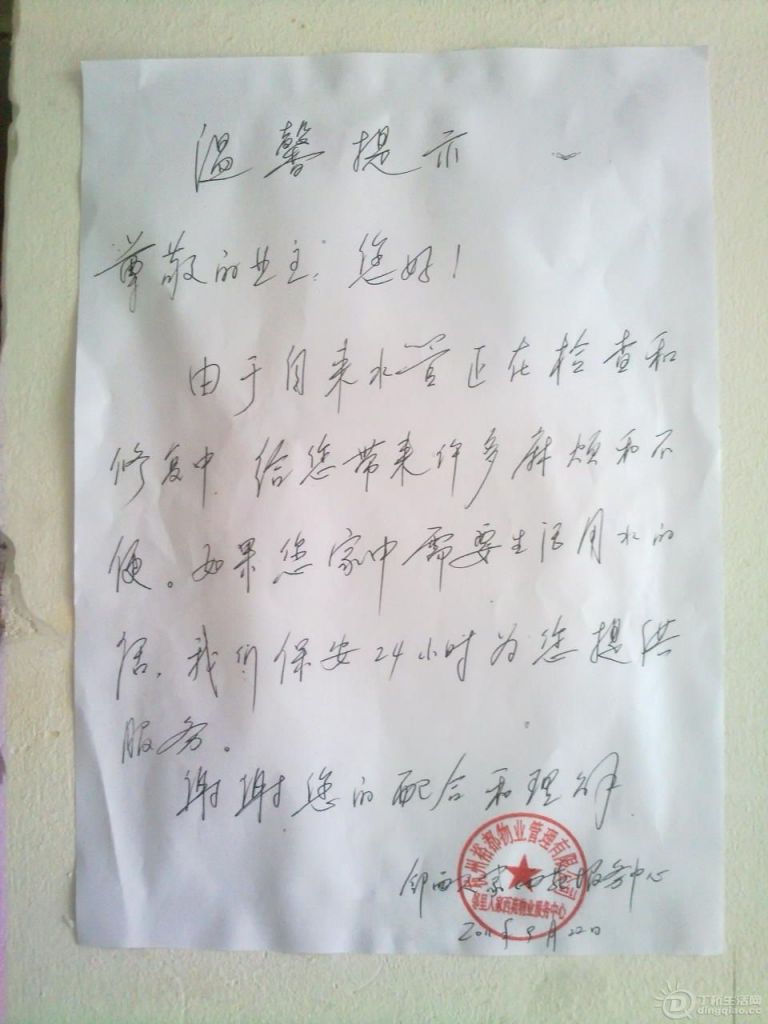 温馨提示
尊敬的业主：您好！
由于自来水管正在检查和
修复中 给您带来许多麻烦和不
便。如果您家中需要生活用水的
话，我们保安24小时为您提供
服务。
谢谢您的配合和理解
杭州裕都物业管理有限公司
邻里人家西苑物业服务中心
服务中心
2011年9月22日
丁桥生活网
dingqiao.cc